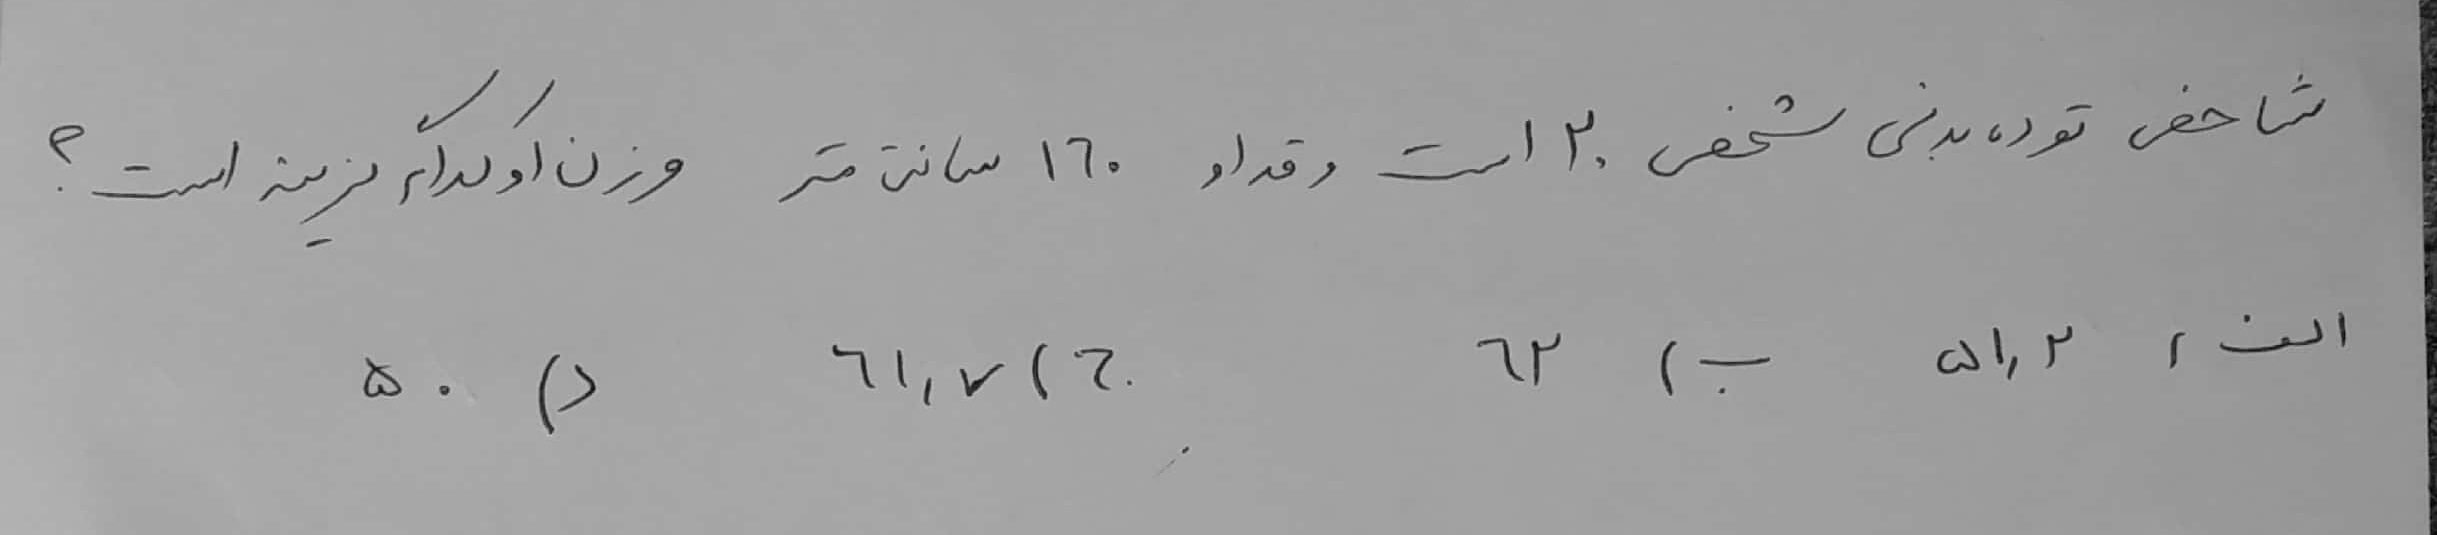 شاخص توده بدنی شخصی ۲۰ است و قد او ۱۶۰ سانتی متر وزن او کدام گزینه است؟
الف) ۵۱٫۲ ب) ۶۲ ج) ۶۱٫۷ د) ۵۰